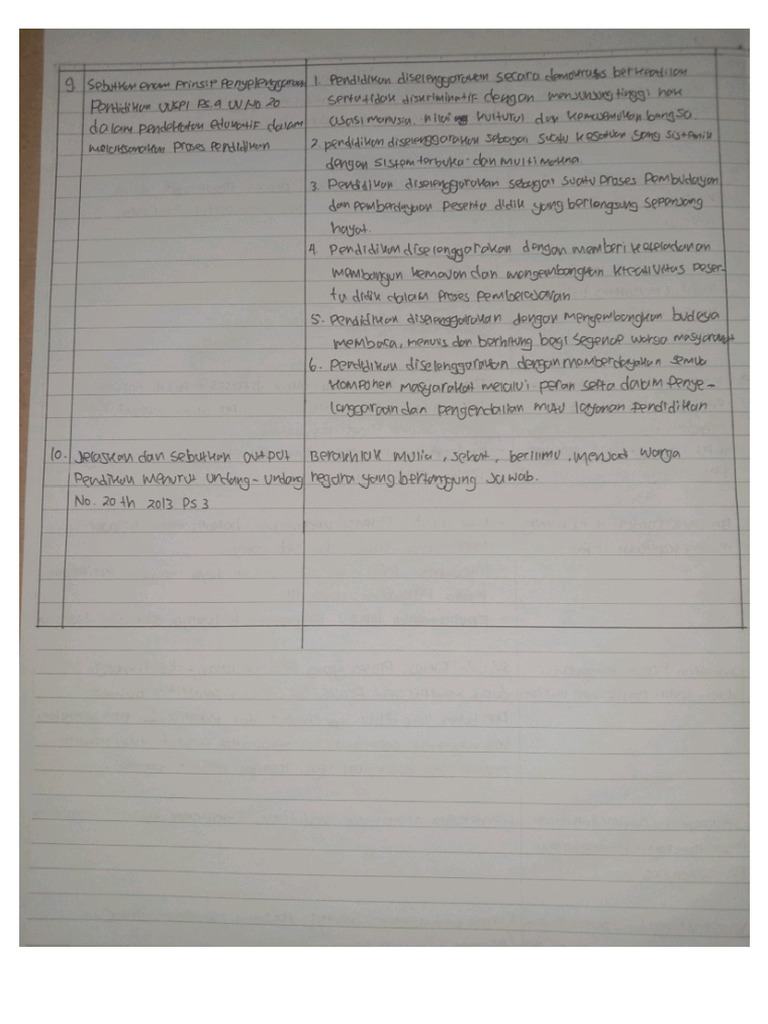 9 Sebutkan enam prinsip penyelenggaraan
Pendidikan Ps.4 UU No. 20
dalam pendekatan edukatif dalam
melaksanakan proses pendidikan
1. Pendidikan diselenggarakan secara demokratis berkeadilan
serta tidak diskriminatif dengan menjunjung tinggi hak
asasi manusia, nilai kultural dan kemajemukan bangsa.
2. pendidikan diselenggarakan sebagai suatu kesatuan yang sistemik
dengan sistem terbuka dan multi makna.
3. Pendidikan diselenggarakan sebagai suatu proses Pembudayaan
dan pemberdayaan peserta didik yang berlangsung sepanjang
hayat.
4. Pendidikan diselenggarakan dengan memberi keteladanan
membangun kemauan dan mengembangkan kreativitas peser-
ta didik dalam proses pembelajaran
5. Pendidikan diselenggarakan dengan mengembangkan budaya
membaca, menulis dan berhitung bagi segenap warga masyarakat
6. Pendidikan diselenggarakan dengan memberdayakan semua
komponen masyarakat melalui peran serta dalam penye-
lenggaraan dan pengendalian mutu layanan pendidikan
10. Jelaskan dan sebutkan output
Pendidikan menurut undang-undang
No. 20 th 2013 PS 3
Berakhlak mulia, sehat, berilmu, menjadi warga
negara yang bertanggung jawab.